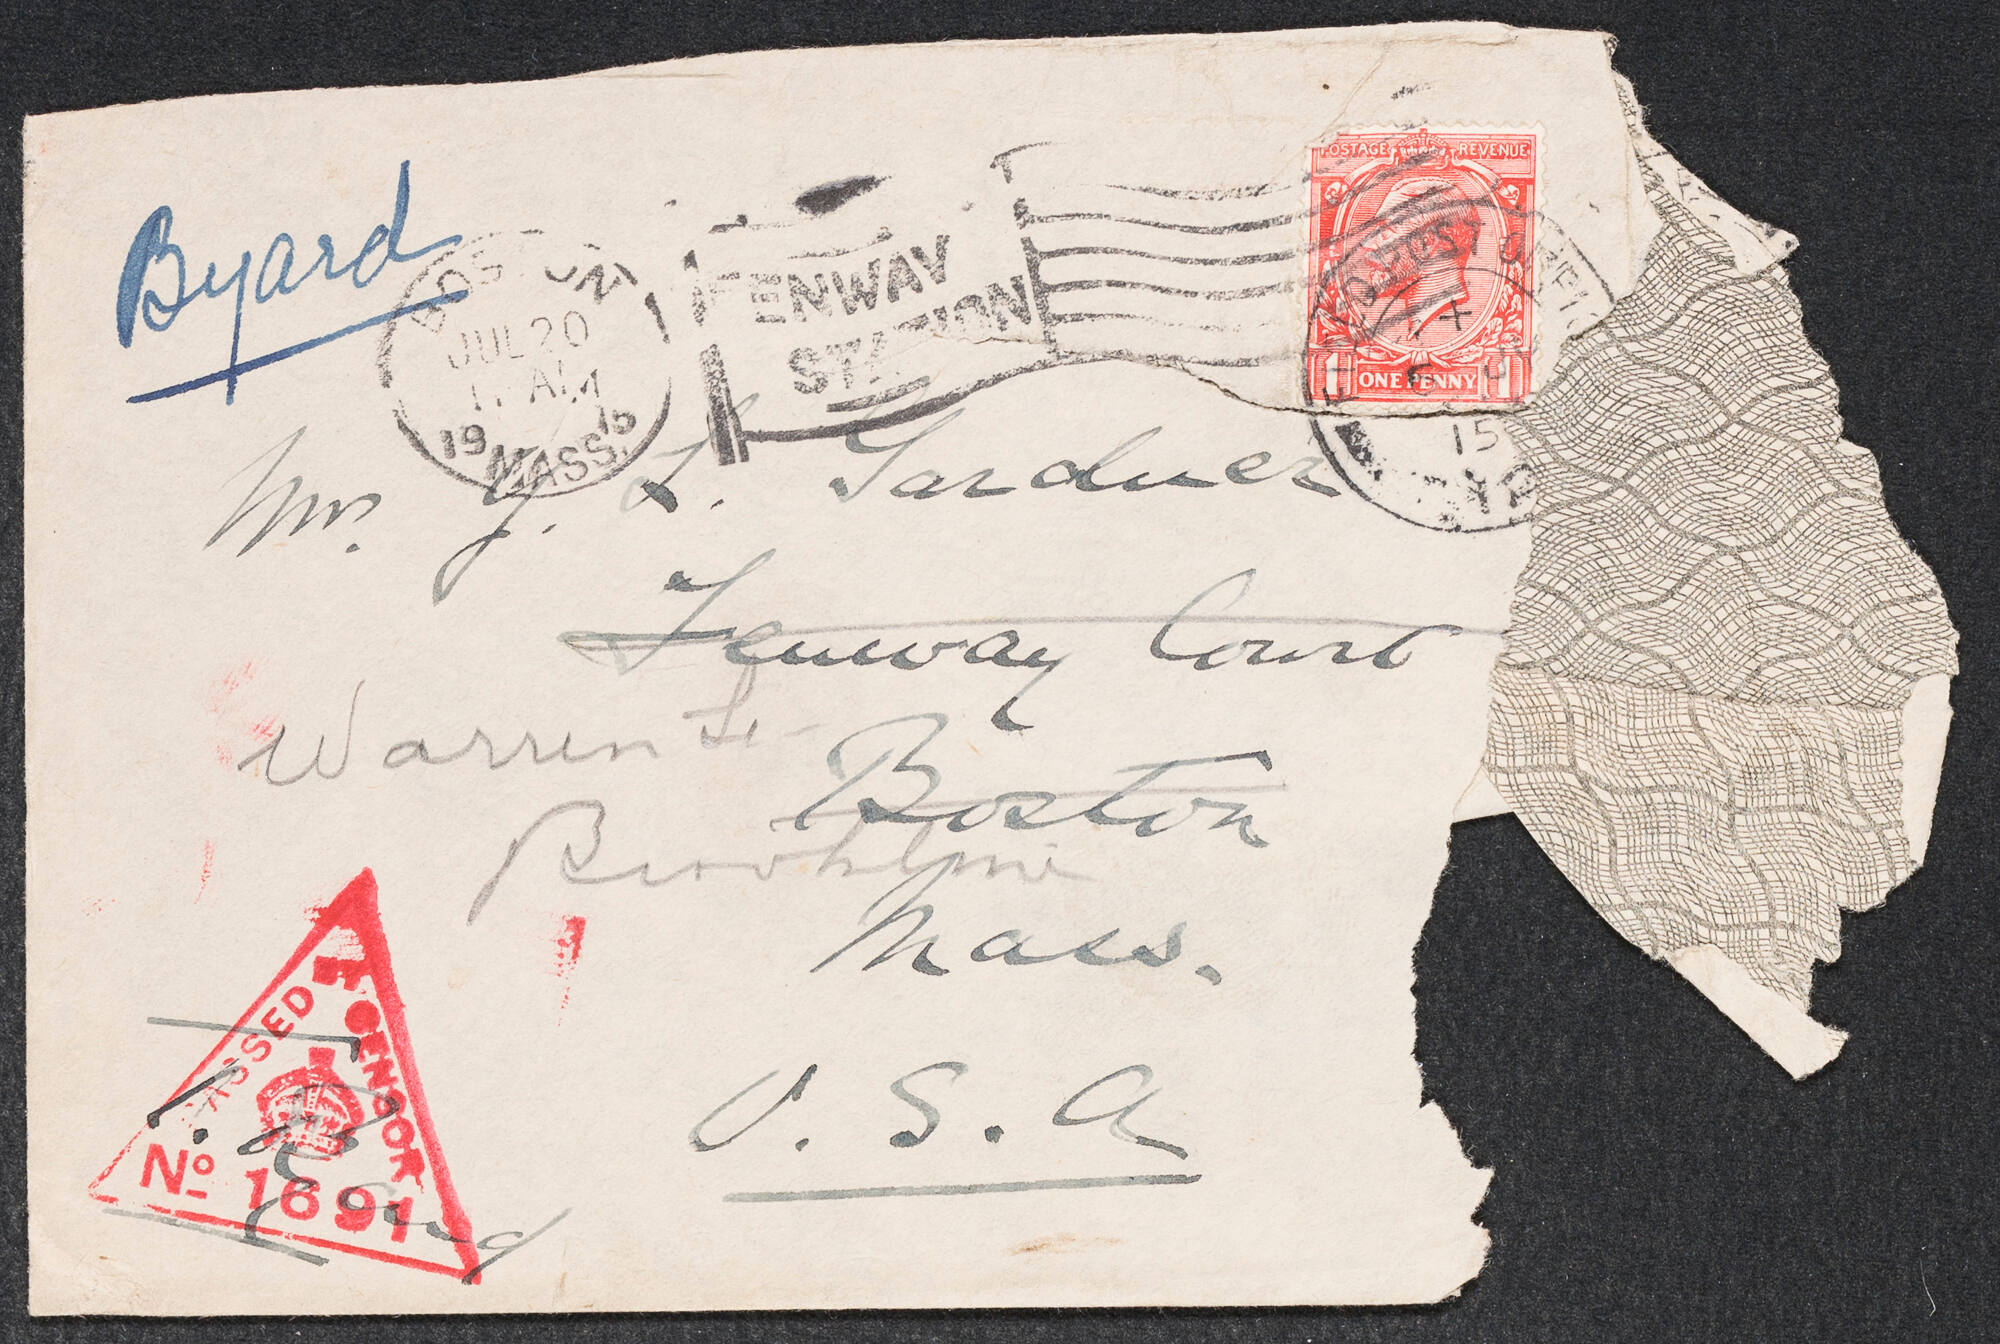 Byard
BOSTON
JUL 20
11 AM
1915
MASS.
FENWAY
STATION
POSTAGE REVENUE
1 ONE PENNY 1
FIELD POST OFFICE
15
Mrs. J. L. Gardner
Fenway Court
Warren St-
Boston
Brookline
Mass.
U.S.A
PASSED CENSOR
No 1691